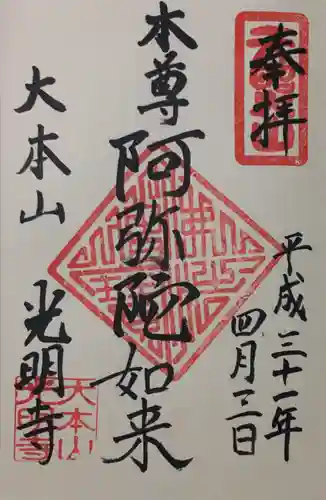 奉拝
平成三十一年
四月三日
本尊
阿弥陀如来
大本山
光明寺
大本山
光明寺